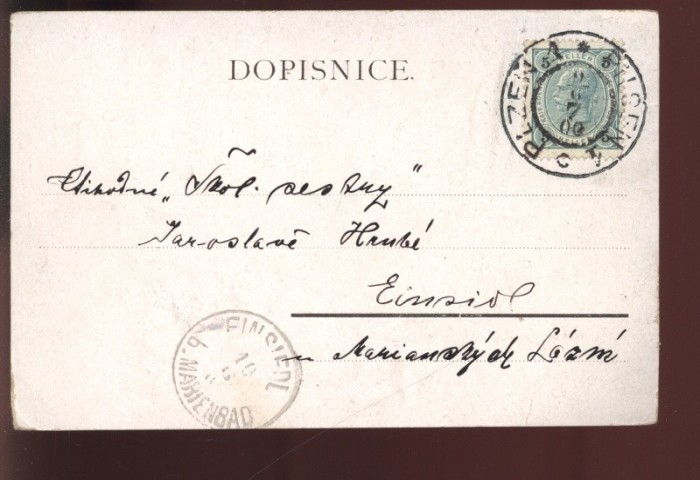 DOPISNICE.
PLZEŇ 1 * PILSEN 1
5 HELLER 5
Ctihodné „Škol. sestry"
Jaroslavě Hrubé
Einsidl
u Marianských Lázní
EINSIEDL
b. MARIENBAD